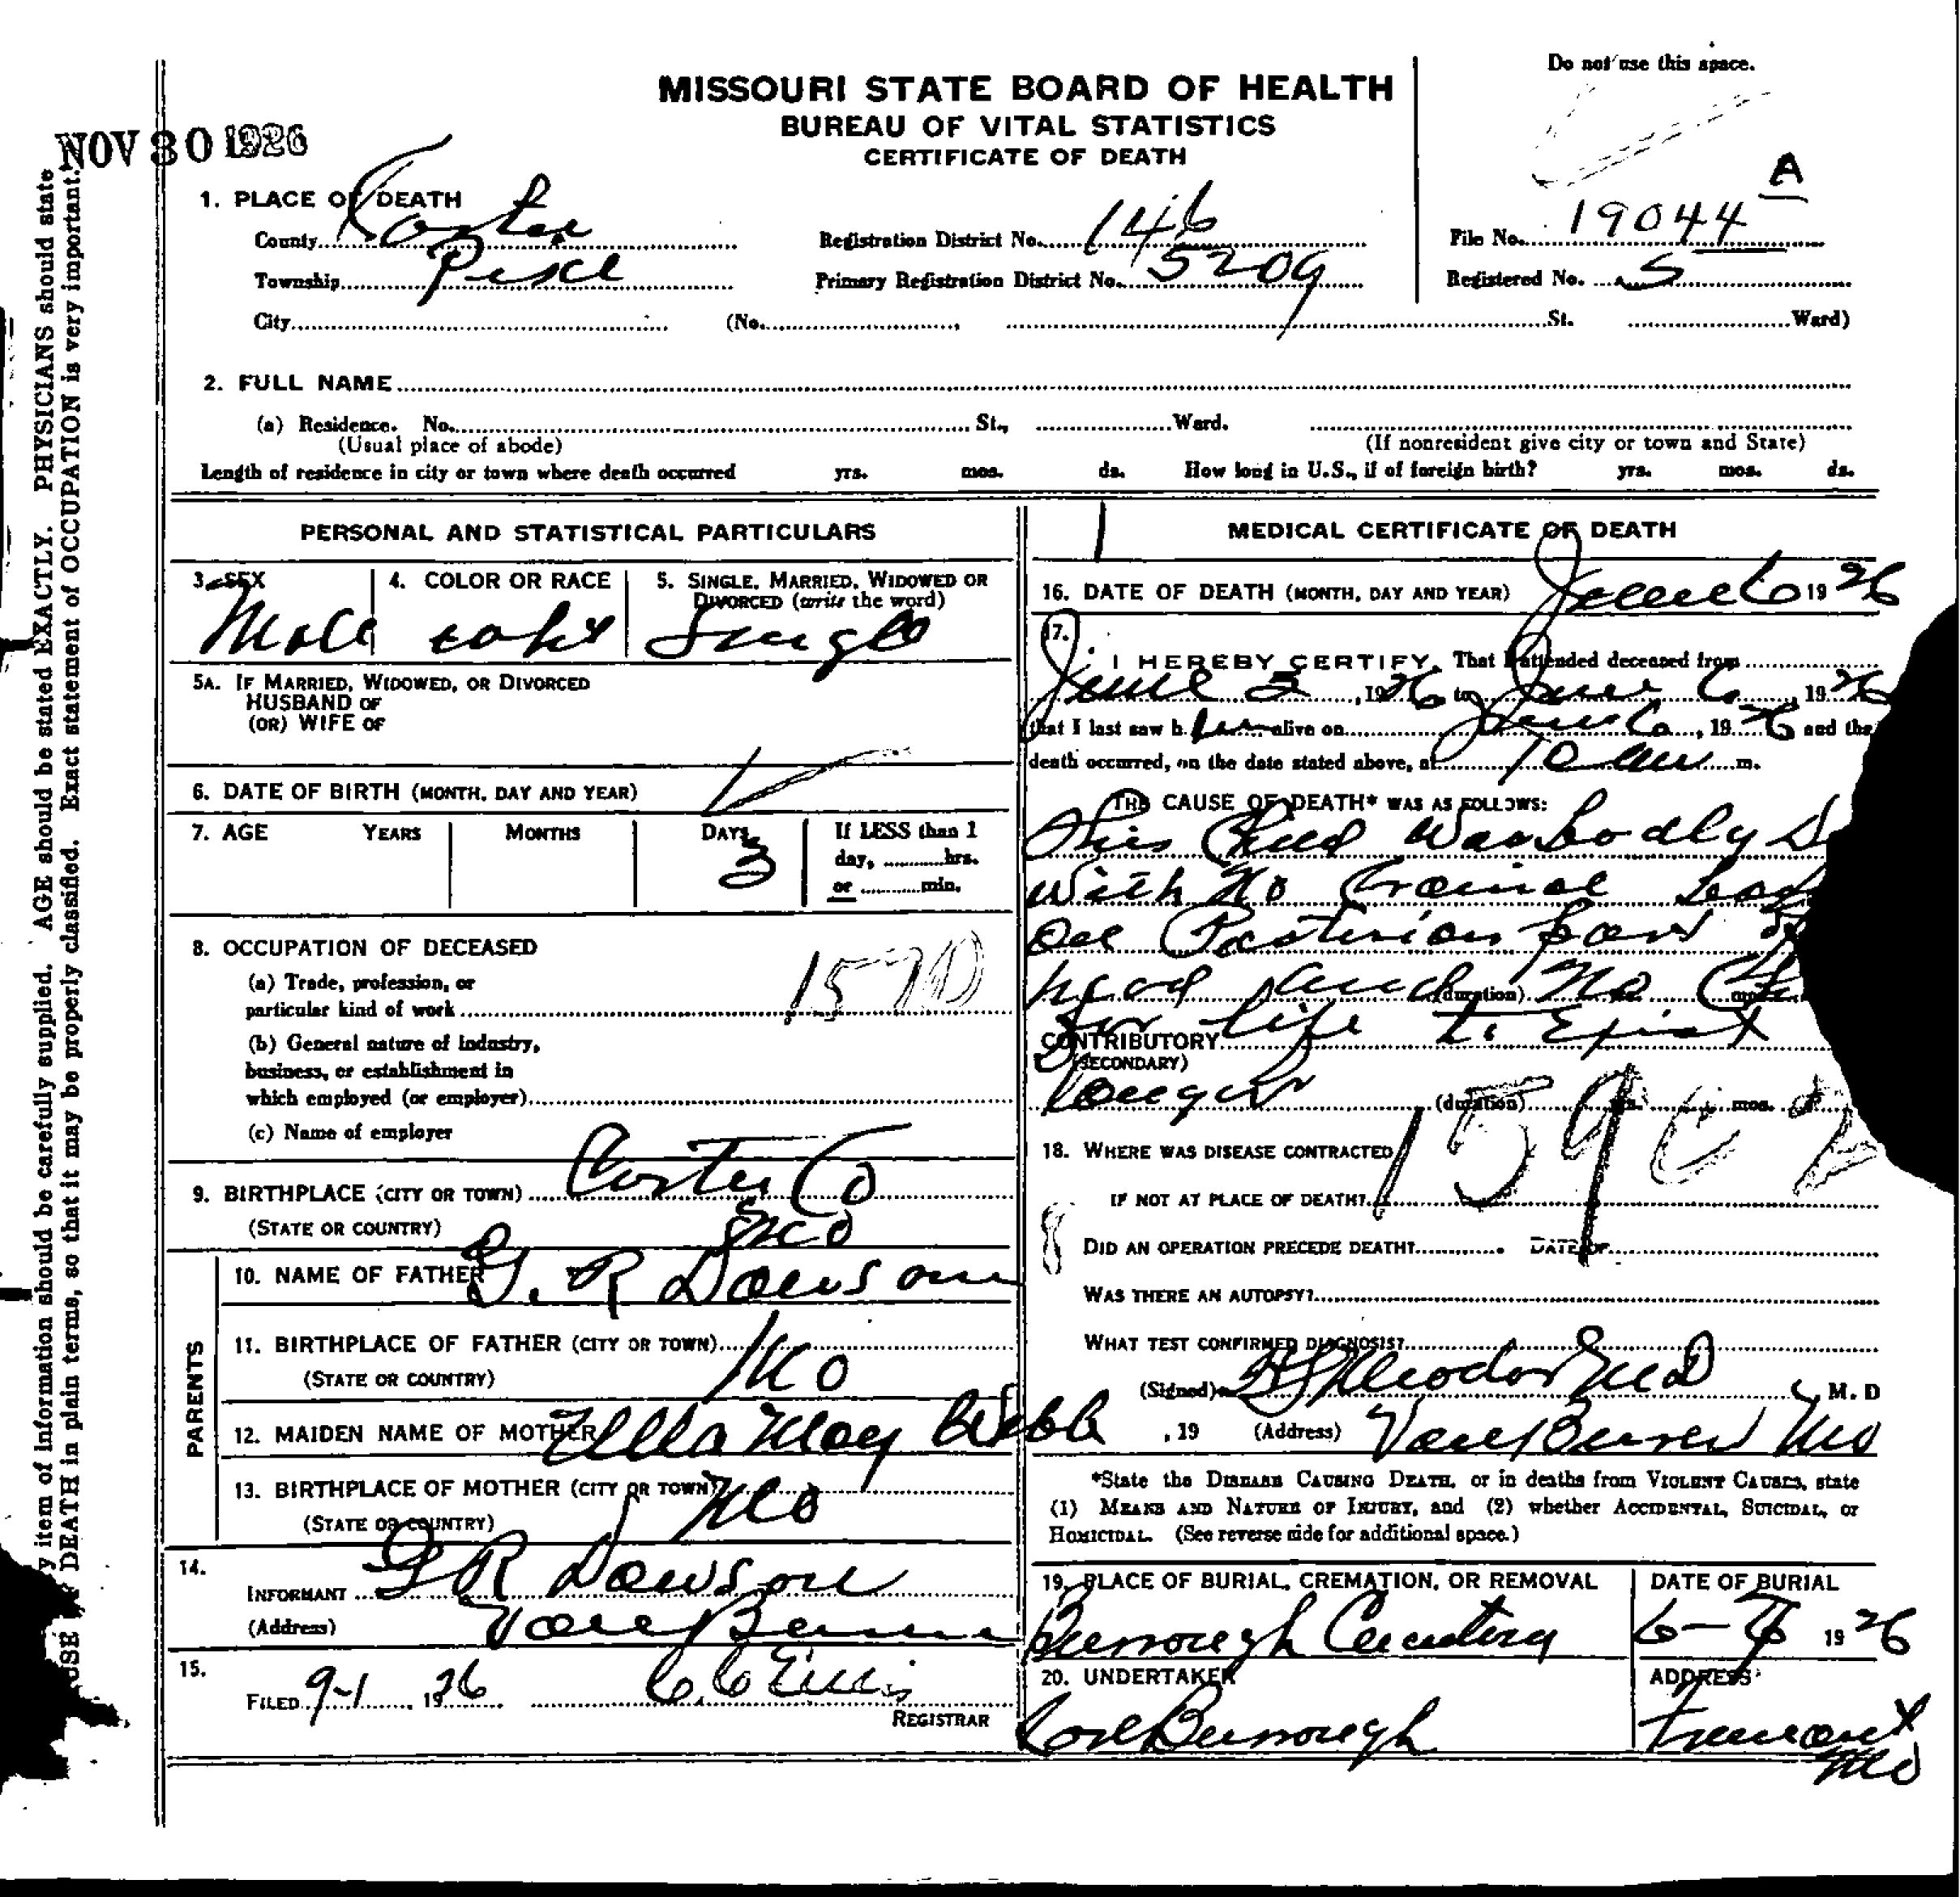 Do not use this space.
MISSOURI STATE BOARD OF HEALTH
BUREAU OF VITAL STATISTICS
CERTIFICATE OF DEATH
NOV 30 1926
A
1. PLACE OF DEATH
County Carter Registration District No. 146 File No. 19044
Township Primary Registration District No. 5209 Registered No. 5
City (No. , St. Ward)
2. FULL NAME
(a) Residence. No. St., Ward.
(Usual place of abode) (If nonresident give city or town and State)
Length of residence in city or town where death occurred yrs. mos. ds. How long in U.S., if of foreign birth? yrs. mos. ds.
PERSONAL AND STATISTICAL PARTICULARS
3. SEX 4. COLOR OR RACE 5. SINGLE, MARRIED, WIDOWED OR
DIVORCED (write the word)
Male Single
5A. IF MARRIED, WIDOWED, OR DIVORCED
HUSBAND OF
(OR) WIFE OF
6. DATE OF BIRTH (MONTH, DAY AND YEAR)
7. AGE YEARS MONTHS DAYS If LESS than 1
3 day, hrs.
or min.
8. OCCUPATION OF DECEASED
(a) Trade, profession, or
particular kind of work
157D
(b) General nature of industry,
business, or establishment in
which employed (or employer)
(c) Name of employer
9. BIRTHPLACE (CITY OR TOWN) Carter Co
(STATE OR COUNTRY) Mo
PARENTS
10. NAME OF FATHER G. R Dawson
11. BIRTHPLACE OF FATHER (CITY OR TOWN)
(STATE OR COUNTRY) Mo
12. MAIDEN NAME OF MOTHER Ella May Webb
13. BIRTHPLACE OF MOTHER (CITY OR TOWN)
(STATE OR COUNTRY) Mo
14.
INFORMANT G R Dawson
(Address) Van Buren
15.
FILED 9-1, 1926 C. C Ellis
REGISTRAR
MEDICAL CERTIFICATE OF DEATH
16. DATE OF DEATH (MONTH, DAY AND YEAR) June 6 1926
17.
I HEREBY CERTIFY, That I attended deceased from
June 3, 1926 to June 6, 1926
that I last saw h alive on June 6, 1926 and the
death occurred, on the date stated above, at 10 am m.
THE CAUSE OF DEATH* WAS AS FOLLOWS:
This Child Was badly
With No
Posterior part
head and No
(duration)
for life to Exist
CONTRIBUTORY
(SECONDARY)
Longer
(duration) yrs. mos.
18. WHERE WAS DISEASE CONTRACTED
IF NOT AT PLACE OF DEATH?
DID AN OPERATION PRECEDE DEATH? DATE OF
WAS THERE AN AUTOPSY?
WHAT TEST CONFIRMED DIAGNOSIS?
(Signed) M. D
, 19 (Address) Van Buren Mo
*State the DISEASE CAUSING DEATH, or in deaths from VIOLENT CAUSES, state
(1) MEANS AND NATURE OF INJURY, and (2) whether ACCIDENTAL, SUICIDAL, or
HOMICIDAL. (See reverse side for additional space.)
19. PLACE OF BURIAL, CREMATION, OR REMOVAL DATE OF BURIAL
Burrough Cemetery 1926
20. UNDERTAKER ADDRESS
Burrough Fremont
Mo
y item of information should be carefully supplied. AGE should be stated EXACTLY. PHYSICIANS should state
DEATH in plain terms, so that it may be properly classified. Exact statement of OCCUPATION is very important.